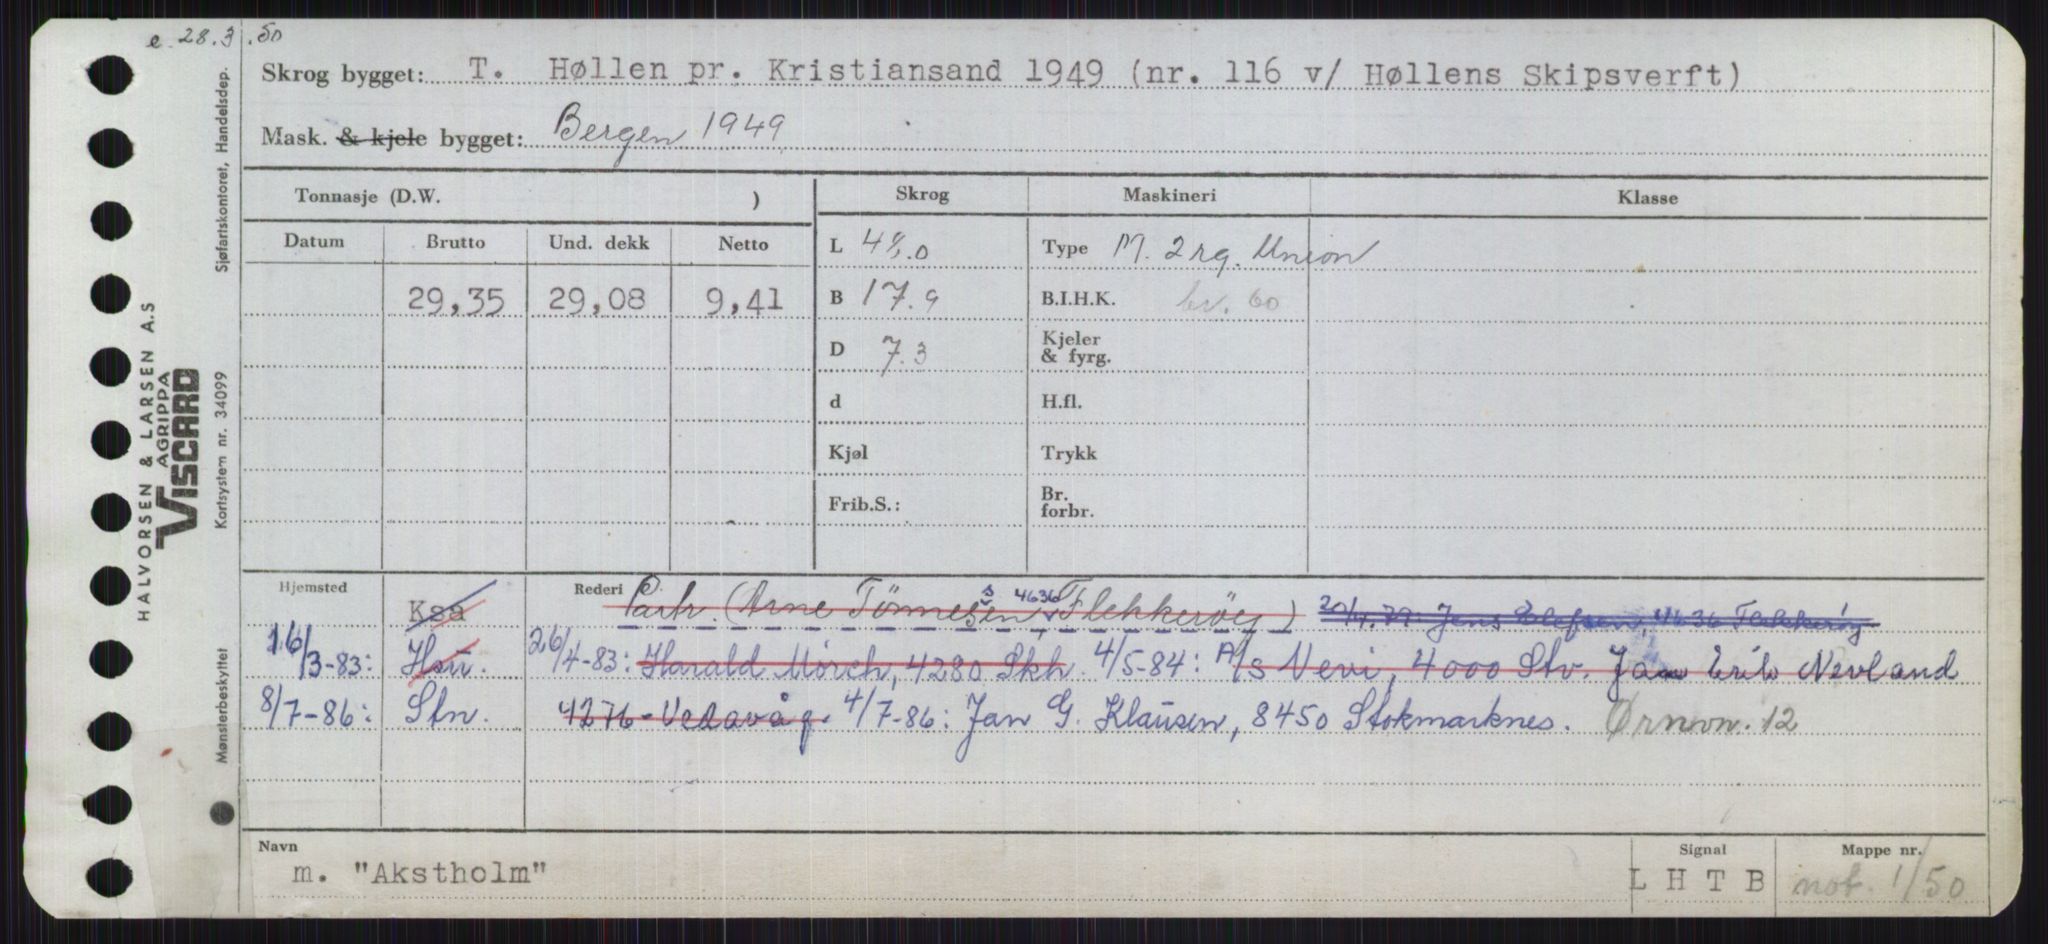 e. 28.3.50
Skrog bygget: T. Høllen pr. Kristiansand 1949 (nr. 116 v/ Høllens Skipsverft)
Mask. & kjele bygget: Bergen 1949
Tonnasje (D.W. ) Skrog Maskineri Klasse
Datum Brutto Und. dekk Netto L Type M. 2 rg. Union
29,35 29,08 9,41 B 17.9 B.I.H.K. br. 60
D 7.3 Kjeler & fyrg.
d H.fl.
Kjøl Trykk
Frib.S.: Br. forbr.
Hjemsted Ksa Rederi Partr. (Arne Tönnesen s 4636 Flekkeröy) Jens Olefsen, 4636 Flekkeröy
16/3-83: Hsu. 26/4-83: Harald Mörch, 4280 Skh. 4/5-84: A/s Nevi, 4000 Stv. Jan Erik Nevland
8/7-86: Stn. 4276 - Vedavåg. 4/7-86: Jan G. Klausen, 8450 Stokmarknes. Ørnvn. 12
Navn m. "Akstholm"
Signal L H T B
Mappe nr. not. 1/50
HALVORSEN & LARSEN A.S
AGRIPPA
VISCARD
Sjøfartskontoret, Handelsdep.
Kortsystem nr. 34099
Mønsterbeskyttet